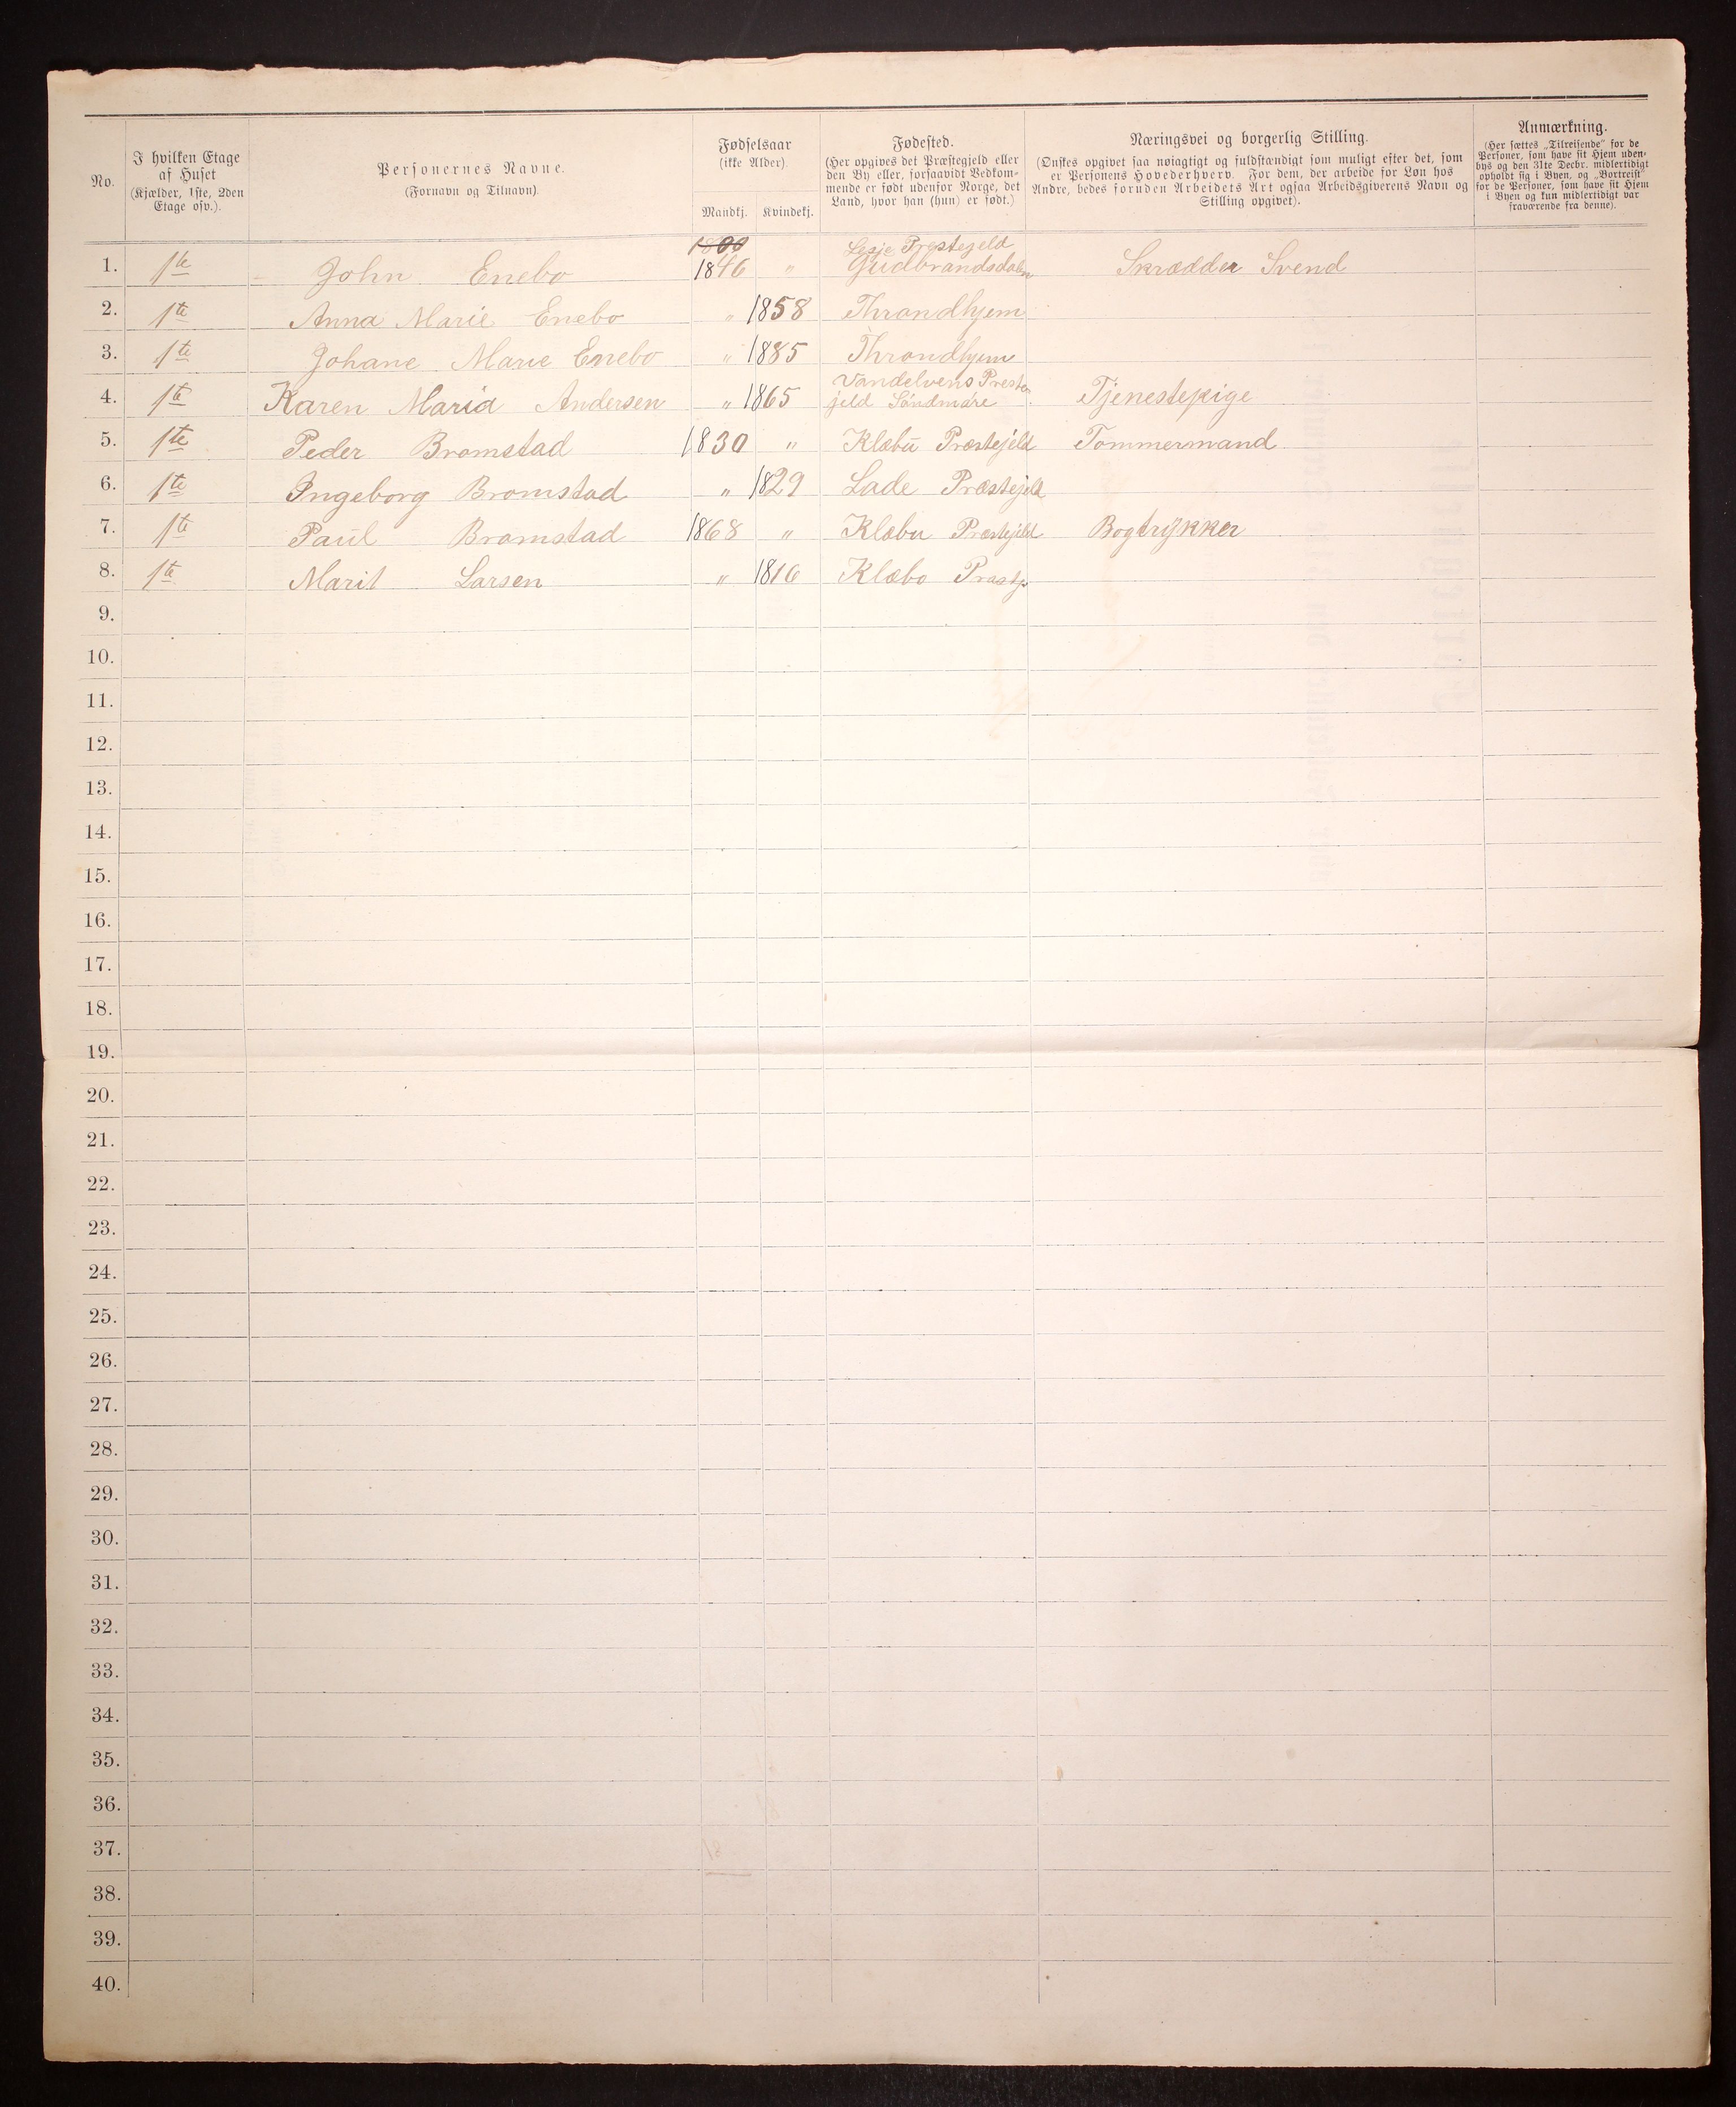 No.
I hvilken Etage
af Huset
(Kjælder, 1ste, 2den
Etage osv.).
Personernes Navne.
(Fornavn og Tilnavn).
Fødselsaar
(ikke Alder).
Mandkj. Kvindekj.
Fødested.
(Her opgives det Præstegjeld eller
den By eller, forsaavidt Vedkom-
mende er født udenfor Norge, det
Land, hvor han (hun) er født.)
Næringsvei og borgerlig Stilling.
(Ønskes opgivet saa nøiagtigt og fuldstændigt som muligt efter det, som
er Personens Hovederhverv. For dem, der arbeide for Løn hos
Andre, bedes foruden Arbeidets Art ogsaa Arbeidsgiverens Navn og
Stilling opgivet).
Anmærkning.
(Her sættes „Tilreisende" for de
Personer, som have sit Hjem uden-
bys og den 31te Decbr. midlertidigt
opholdt sig i Byen, og „Bortreist"
for de Personer, som have sit Hjem
i Byen og kun midlertidigt var
fraværende fra denne).
Lesje Prestegjeld
1. 1ste John Enebo 1846 " Gudbrandsdalen Skrædder Svend
2. 1te Anna Marie Enebo " 1858 Throndhjem
3. 1te Johane Marie Enebo " 1885 Throndhjem
Vandelvens Preste
4. 1te Karen Maria Andersen " 1865 gjeld Söndmöre Tjenestepige
5. 1te Peder Bromstad 1830 " Klæbu Præstejeld Tømmermand
6. 1te Ingeborg Bromstad " 1829 Lade Præstejeld
7. 1te Paul Bromstad 1868 " Klæbu Præstejeld Bogtrykker
8. 1te Marit Larsen " 1816 Klæbo Præstj
9.
10.
11.
12.
13.
14.
15.
16.
17.
18.
19.
20.
21.
22.
23.
24.
25.
26.
27.
28.
29.
30.
31.
32.
33.
34.
35.
36.
37.
38.
39.
40.